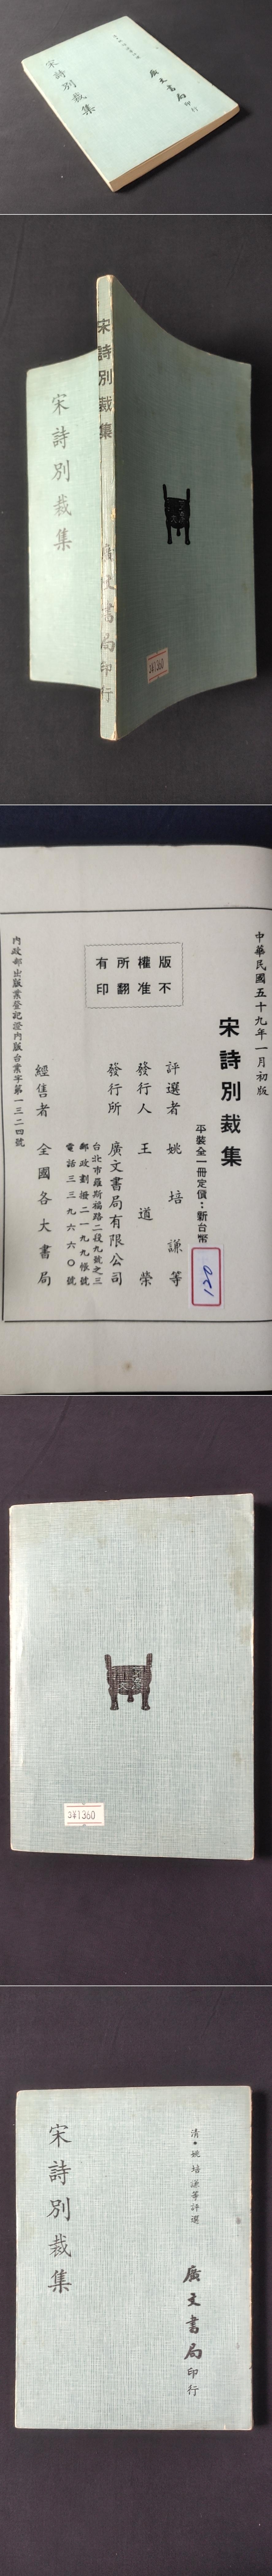 宋詩別裁集
廣文書局
印行
宋詩別裁集
廣文書局印行
宋詩別裁集
中華民國五十九年一月初版
宋詩別裁集
平裝全一冊定價：新台幣
120
評選者 姚培謙等
發行人 王道榮
發行所 廣文書局有限公司
台北市羅斯福路二段九號之三
郵政劃撥二一九九帳號
電話三三九六六〇號
經售者 全國各大書局
內政部出版業登記證內版台業字第一三二四號
版權所有
不准翻印
3¥1360
清•姚培謙等評選
廣文書局
印行
宋詩別裁集